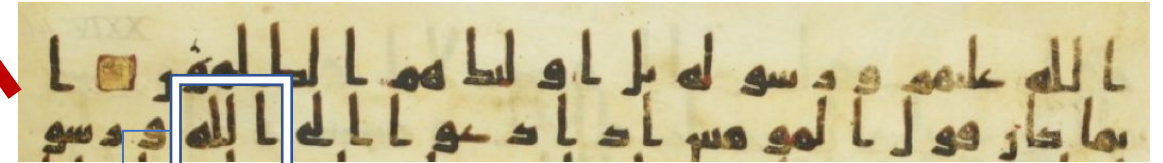 الله عليهم ورسوله بل اوليك هم الظلمون ا
نما كان قول المومنين اذا دعوا الى الله ورسو